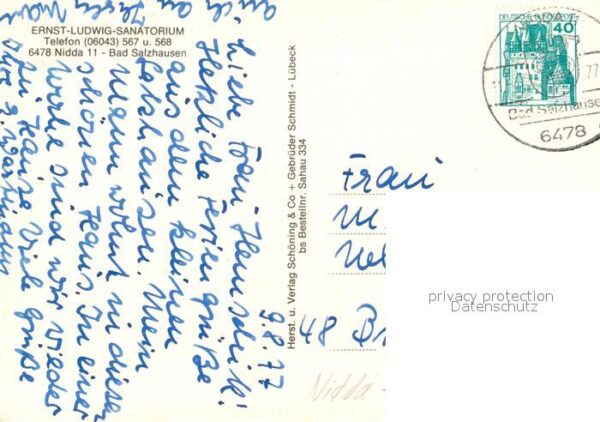 ERNST-LUDWIG-SANATORIUM
Telefon (06043) 567 u. 568
6478 Nidda 11 - Bad Salzhausen
9.8.77
Liebe Frau
Herzliche Feriengrüße
aus dem kleinen
Salzhausen. Mein
Mann wohnt in diesem
schönen Haus. In einer
Woche sind wir wieder
zu Hause. Viele Grüße
auch an Ihren Mann
Herst. u. Verlag Schöning & Co + Gebrüder Schmidt - Lübeck
bs Bestellnr. Sahau 334
DEUTSCHE BUNDESPOST
40
77
Bad Salzhausen
6478
Frau
M.
48 B
Nidda -
privacy protection
Datenschutz